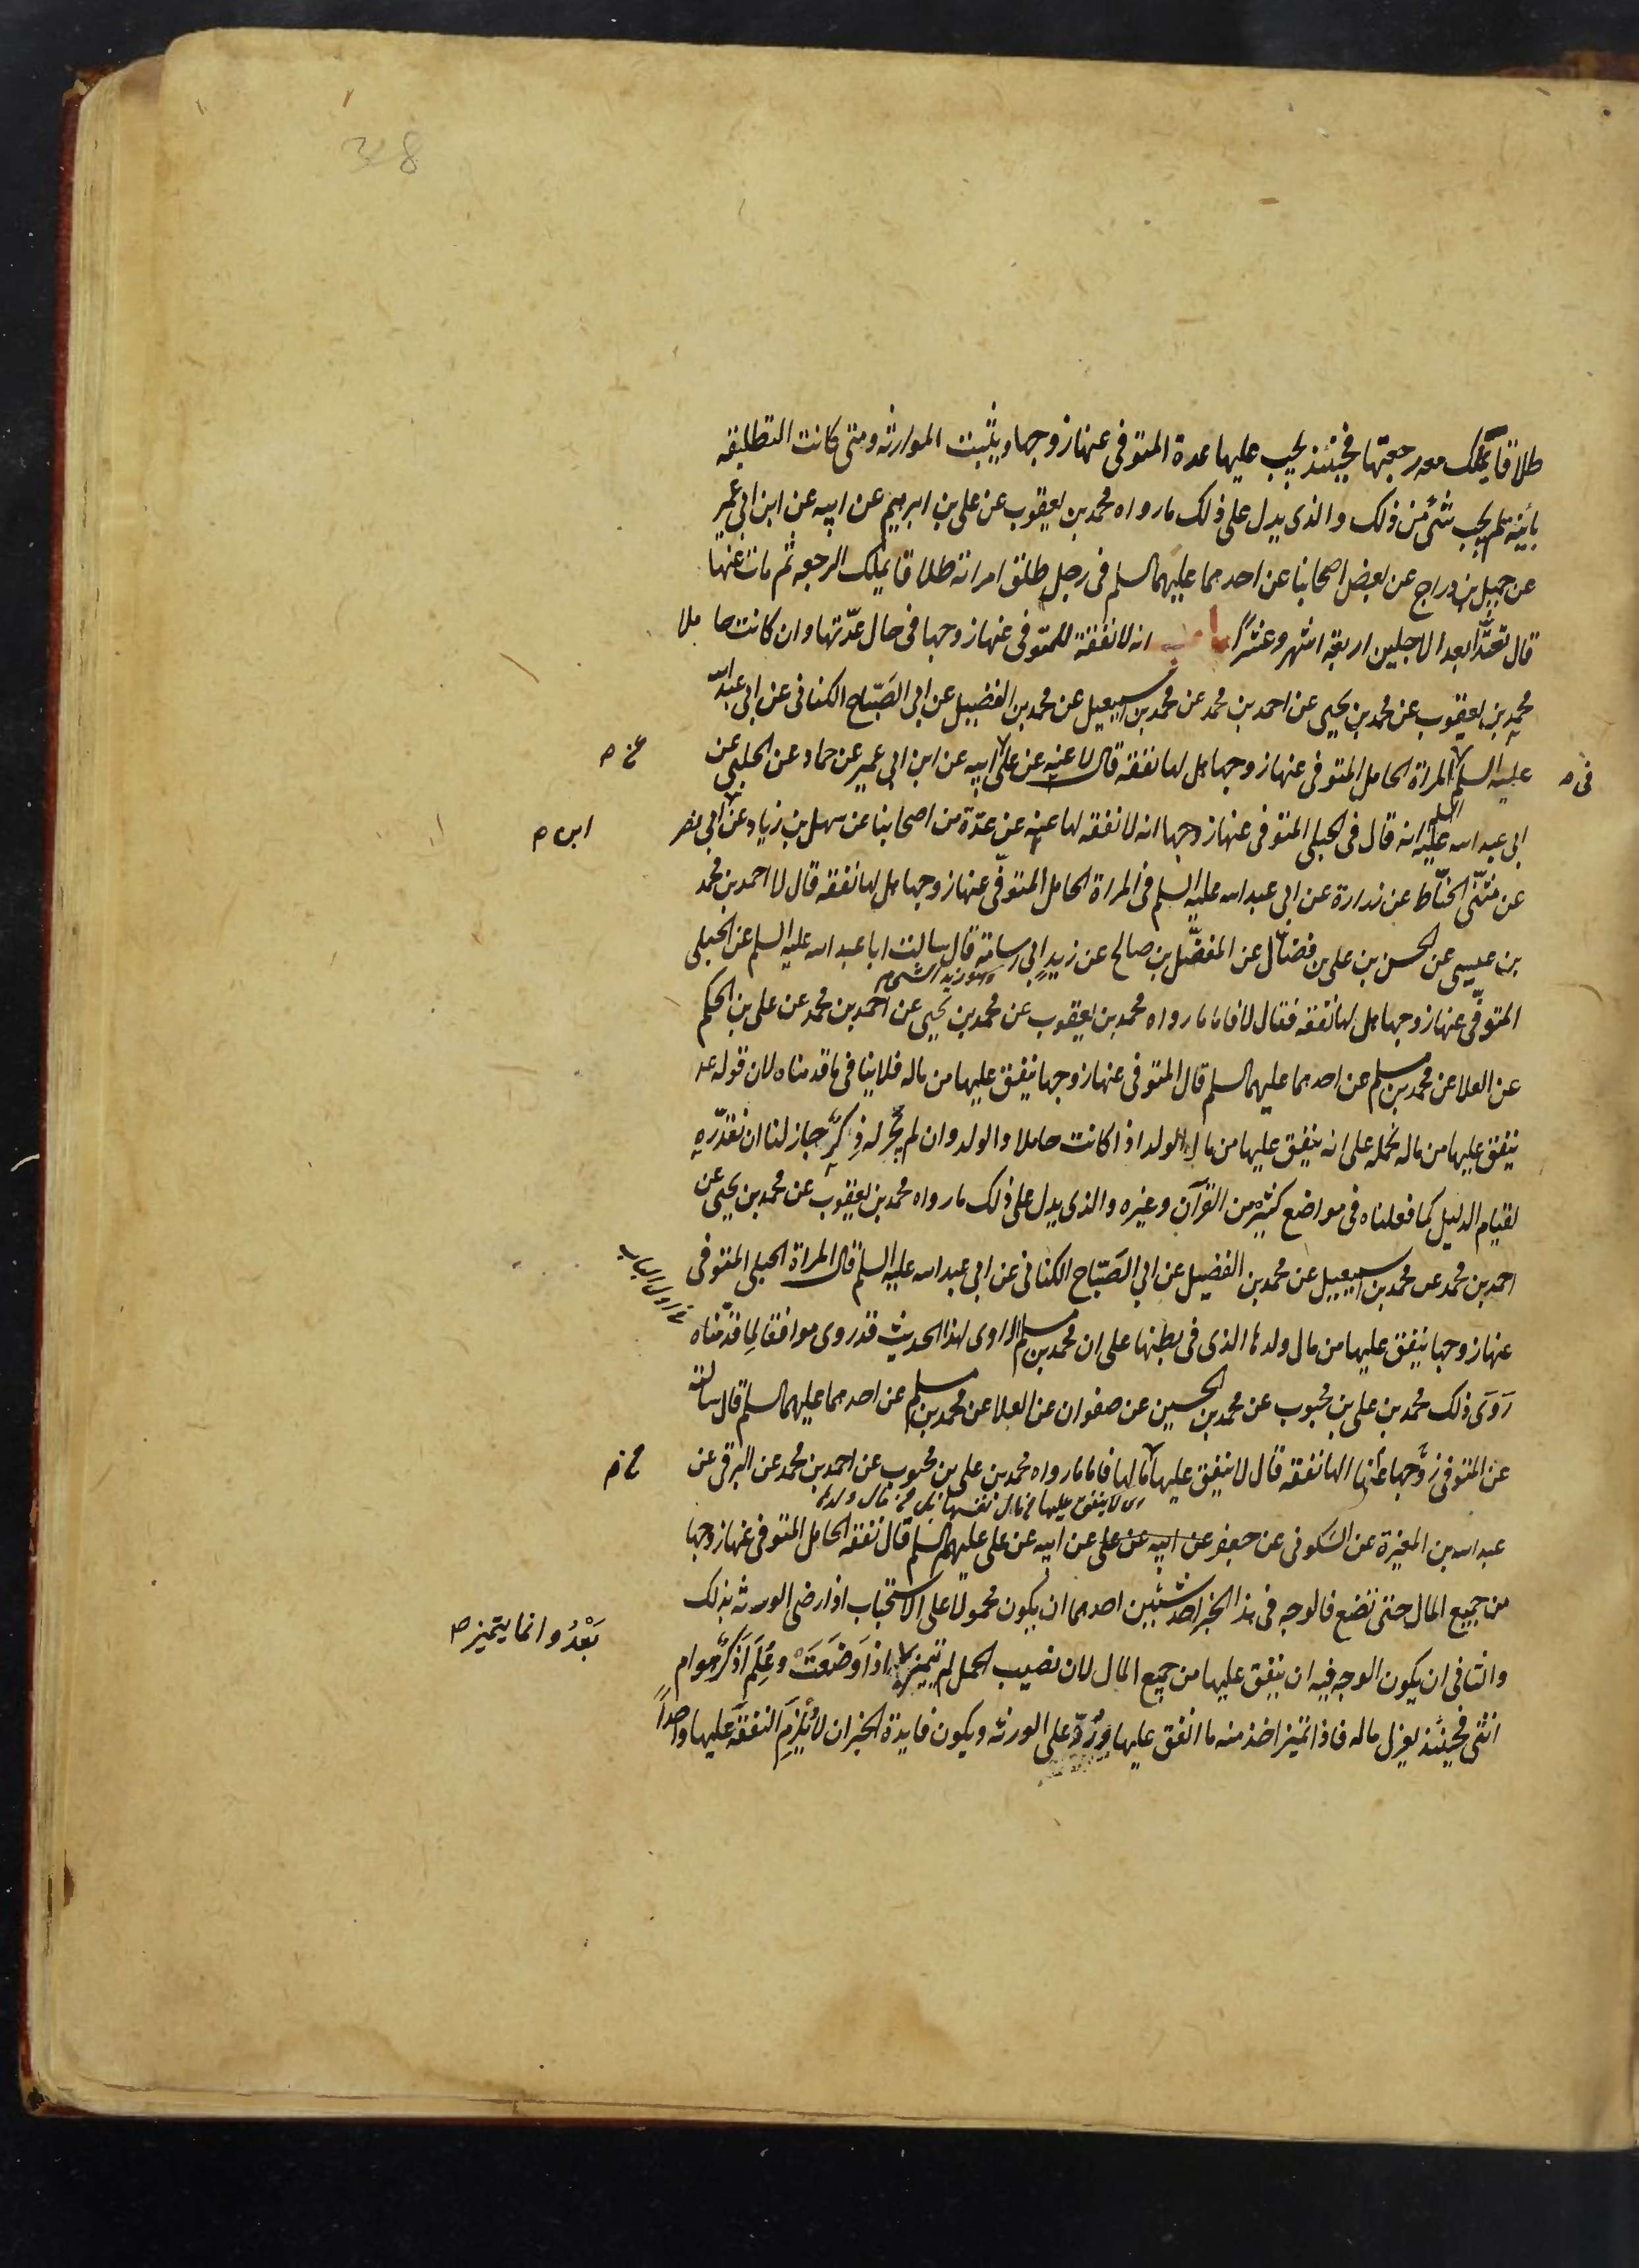 328
طلاقا يملك معه رجعتها فحينئذ يجب عليها عدة المتوفى عنها زوجها ويثبت الموارثة ومتى كانت التطليقة
باينة لم يجب شئ من ذلك والذى يدل على ذلك ما رواه محمد بن يعقوب عن على بن ابرهيم عن ابيه عن ابن ابى عمير
عن جميل بن دراج عن بعض اصحابنا عن احدهما عليهما السلم فى رجل طلق امراته طلاقا يملك الرجعة ثم مات عنها
قال تعتد ابعد الاجلين اربعة اشهر وعشرًا باب انه لا نفقة للمتوفى عنها زوجها فى حال عدّتها وان كانت حاملا
محمد بن يعقوب عن محمد بن يحيى عن احمد بن محمد عن محمد بن اسمعيل عن محمد بن الفضيل عن ابى الصبّاح الكنانى عن ابى عبد الله
عليه السلم المراة الحامل المتوفى عنها زوجها هل لها نفقة قال لا عنه عن على ابيه عن ابن ابى عمير عن حماد عن الحلبى عن
فى صح
عن صح
ابى عبد الله عليه السلم انه قال فى الحبلى المتوفى عنها زوجها انه لا نفقة لها عنه عن عدّة من اصحابنا عن سهل بن زياد عن ابى نصر
ابن صح
عن مثنّى الحنّاط عن زرارة عن ابى عبد الله عليه السلم فى المراة الحامل المتوفّى عنها زوجها هل لها نفقة قال لا احمد بن محمد
بن عيسى عن الحسن بن على بن فضّال عن المفضّل بن صالح عن زيد ابى اسامة قال سالت ابا عبد الله عليه السلم عن الحبلى
وهو زيد الشحام
المتوفّى عنها زوجها هل لها نفقة فقال لا فاما ما رواه محمد بن يعقوب عن محمد بن يحيى عن احمد بن محمد عن على بن الحكم
عن العلا عن محمد بن مسلم عن احدهما عليهما السلم قال المتوفى عنها زوجها ينفق عليها من ماله فلا ينافى ما قدمناه لان قوله عـ
ينفق عليها من ماله نحمله على انه ينفق عليها من مال الولد اذا كانت حاملا والولد وان لم يجر له ذِكرٌ جاز لنا ان نقدّره
لقيام الدليل كما فعلناه فى مواضع كثيرة من القرآن وغيره والذى يدل على ذلك ما رواه محمد بن يعقوب عن محمد بن يحيى عن
احمد بن محمد عن محمد بن اسمعيل عن محمد بن الفضيل عن ابى الصبّاح الكنانى عن ابى عبد الله عليه السلم قال المراة الحبلى المتوفى
عنها زوجها ينفق عليها من مال ولدها الذى فى بطنها على ان محمد بن مسلم الراوى لهذا الحديث قد روى موافقا لِما قدّمناه
رَوَى ذلك محمد بن على بن محبوب عن محمد بن الحسين عن صفوان عن العلا عن محمد بن مسلم عن احدهما عليهما السلم قال سالته
عن المتوفى زوجها عنها الها نفقة قال لا ينفق عليها مالها فاما ما رواه محمد بن على بن محبوب عن احمد بن محمد عن البرقى عن
اى لا ينفق عليها من مال نفسها بل من مال ولدها
عبد الله بن المغيرة عن السكونى عن جعفر عن ابيه عن على عن ابيه عن على عليهم السلم قال نفقة الحامل المتوفى عنها زوجها
من جميع المال حتى تضع فالوجه فى هذا الخبر احد شيئين احدهما ان يكون محمولا على الاستحباب اذا رضى الورثه بذلك
والثانى ان يكون الوجه فيه ان ينفق عليها من جميع المال لان نصيب الحمل لم يتميز اذا وَضَعَتْ وعُلِمَ اَذَكَرٌ هو ام
بَعْدُ وانما يتميز صح
انثى فحينئذ يعزل ماله فاذا تميز اخذ منه ما انفق عليها ورُدّ على الورثه ويكون فايدة الخبر ان لا يُلزم النفقة عليها واحداً